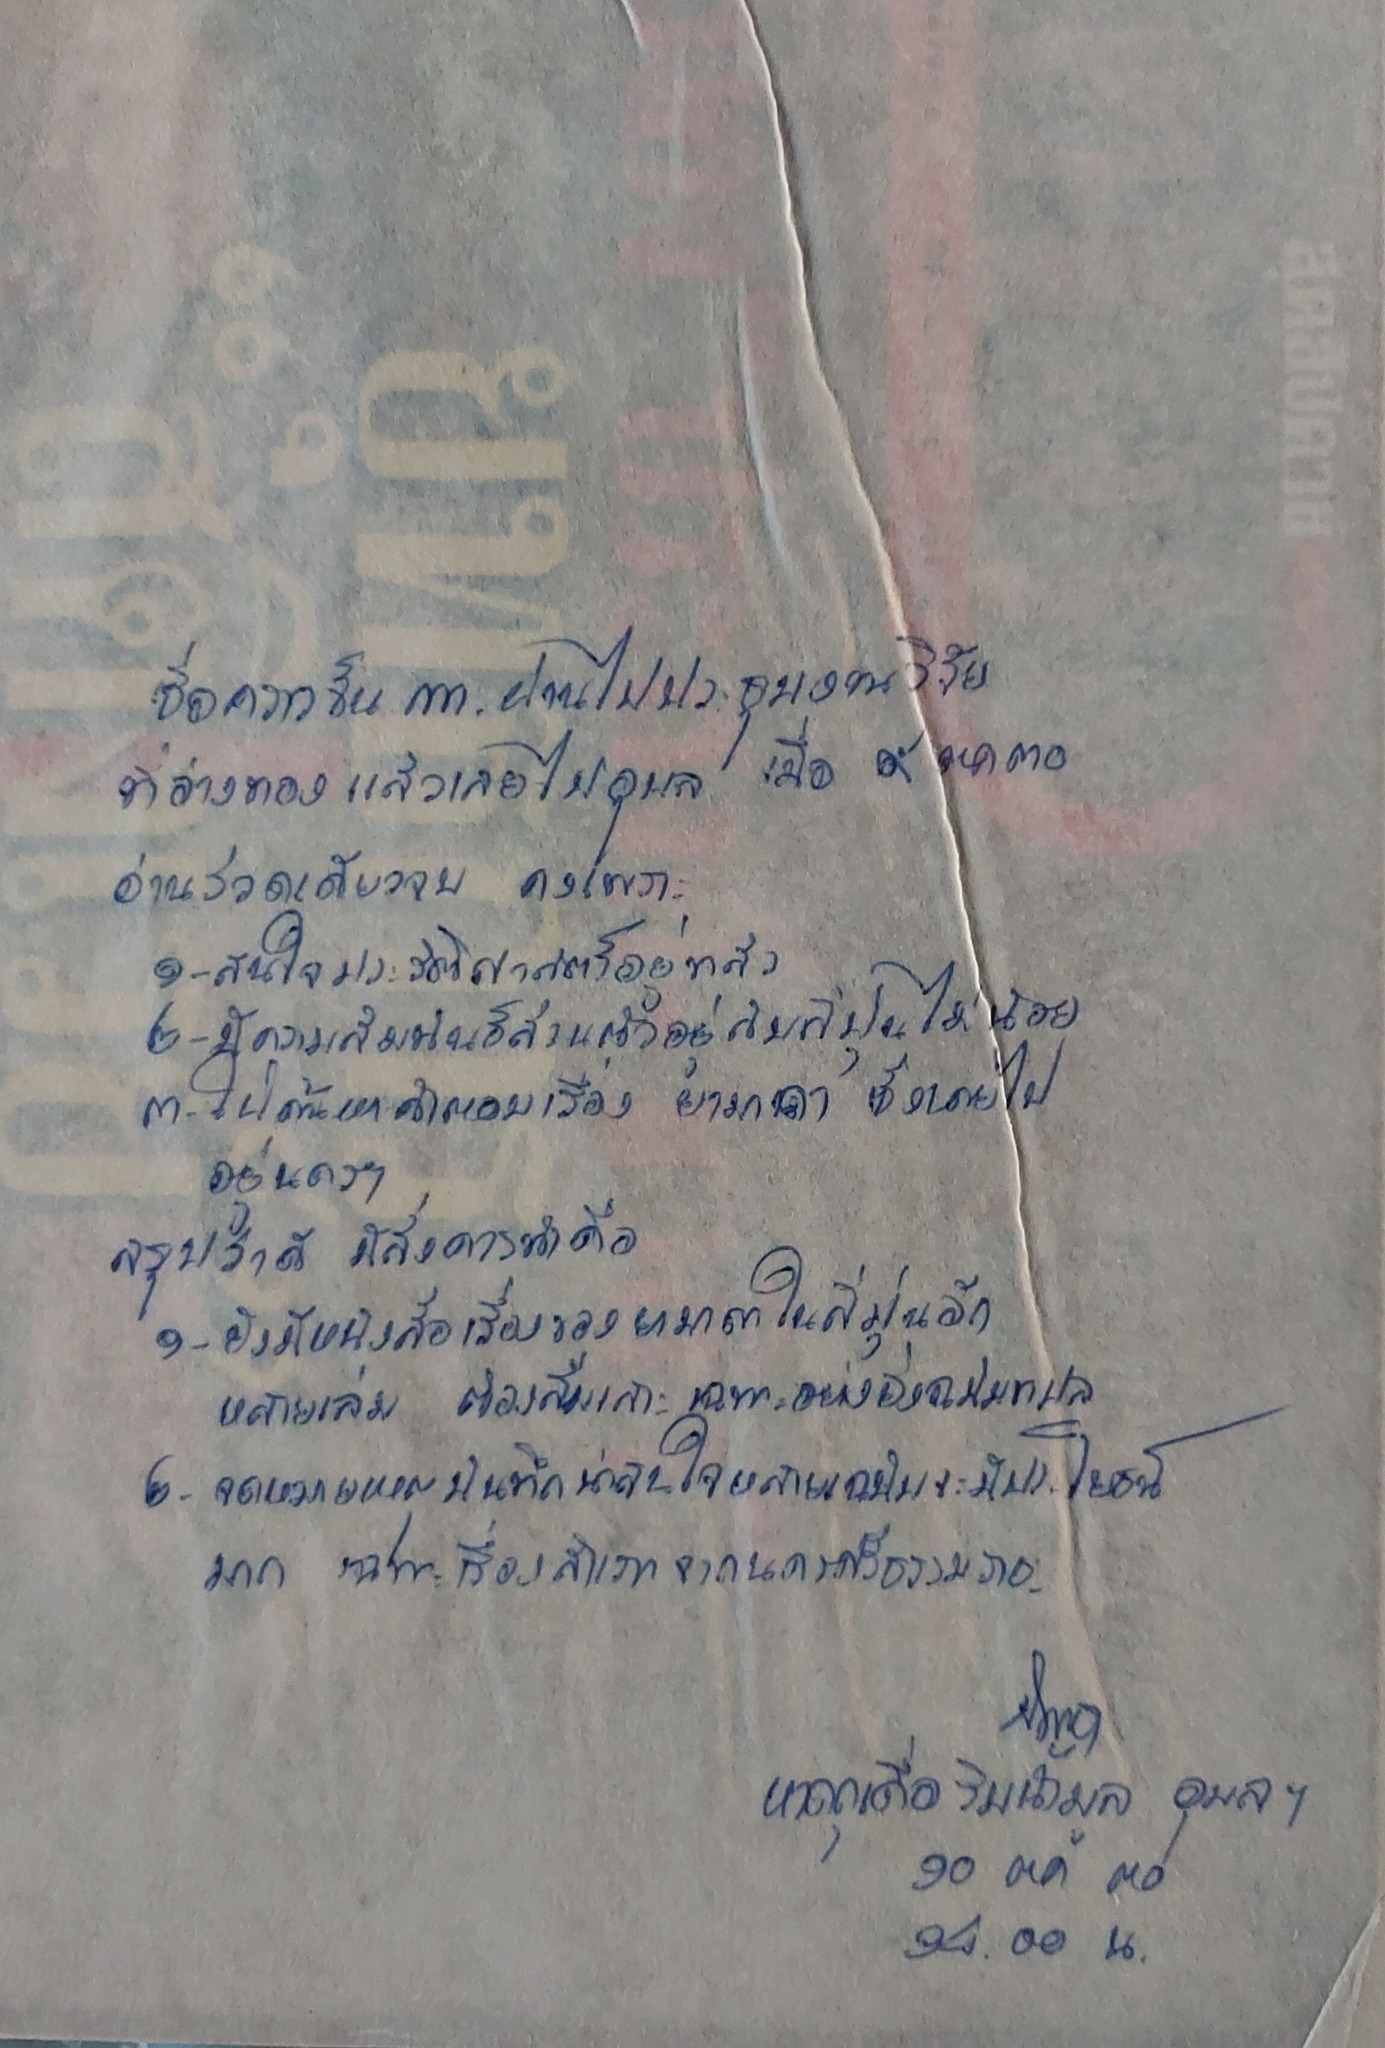 สุดสัปดาห์
ซื้อคราวขึ้น กท. ผ่านไปประชุมงานวิจัย
ที่อ่างทองแล้วเลยไปอุบล เมื่อ ๘ ตค ๓๐
อ่านรวดเดียวจบ คงเพราะ
๑- สนใจประวัติศาสตร์อยู่แล้ว
๒- มีความสัมพันธ์ส่วนตัวอยู่กับญี่ปุ่นไม่น้อย
๓- ไปค้นหาคำตอบเรื่อง ยามาดา ซึ่งเคยไป
อยู่นครฯ
สรุปว่าดี มีสิ่งควรทำคือ
๑- ยังมีหนังสือเรื่องของยามาดาในญี่ปุ่นอีก
หลายเล่ม ต้องสืบเสาะ เฉพาะอย่างยิ่งฉบับแปล
๒- จดหมายเหตุบันทึกน่าสนใจหลายฉบับจะมีประโยชน์
มาก เฉพาะเรื่อง จากนครศรีธรรมราช
หาดคูเดื่อ ริมน้ำมูล อุบลฯ
๑๐ ตค ๓๐
๑๔.๐๐ น.